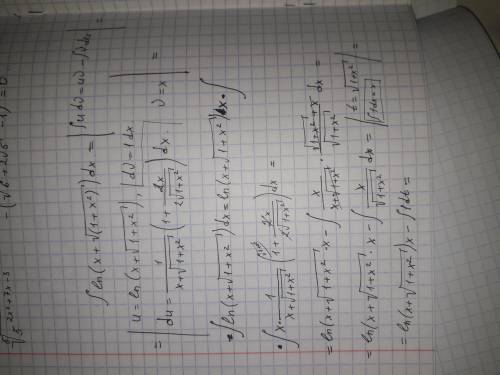 ∛5^(2x²+7x-3) - (√6 + 2√5 - 1) = 0
∫ ln(x+√(1+x²)) dx = | ∫u dv = uv - ∫v du |
= | u = ln(x+√1+x²), dv = 1 dx
du = 1/(x+√1+x²) (1 + 2x/(2√1+x²)) dx. v = x | =
= ∫ ln(x+√1+x²) dx = ln(x+√1+x²) · x - ∫
· ∫ x · 1/(x+√1+x²) (1 + 2x/(2√1+x²)) dx =
= ln(x+√1+x²) · x - ∫ x/(x+√1+x²) · (√1+x² + x)/√1+x² dx =
= ln(x+√1+x²) · x - ∫ x/√1+x² dx = | t = √1+x² | =
= ln(x+√1+x²) x - ∫ 1 dt =